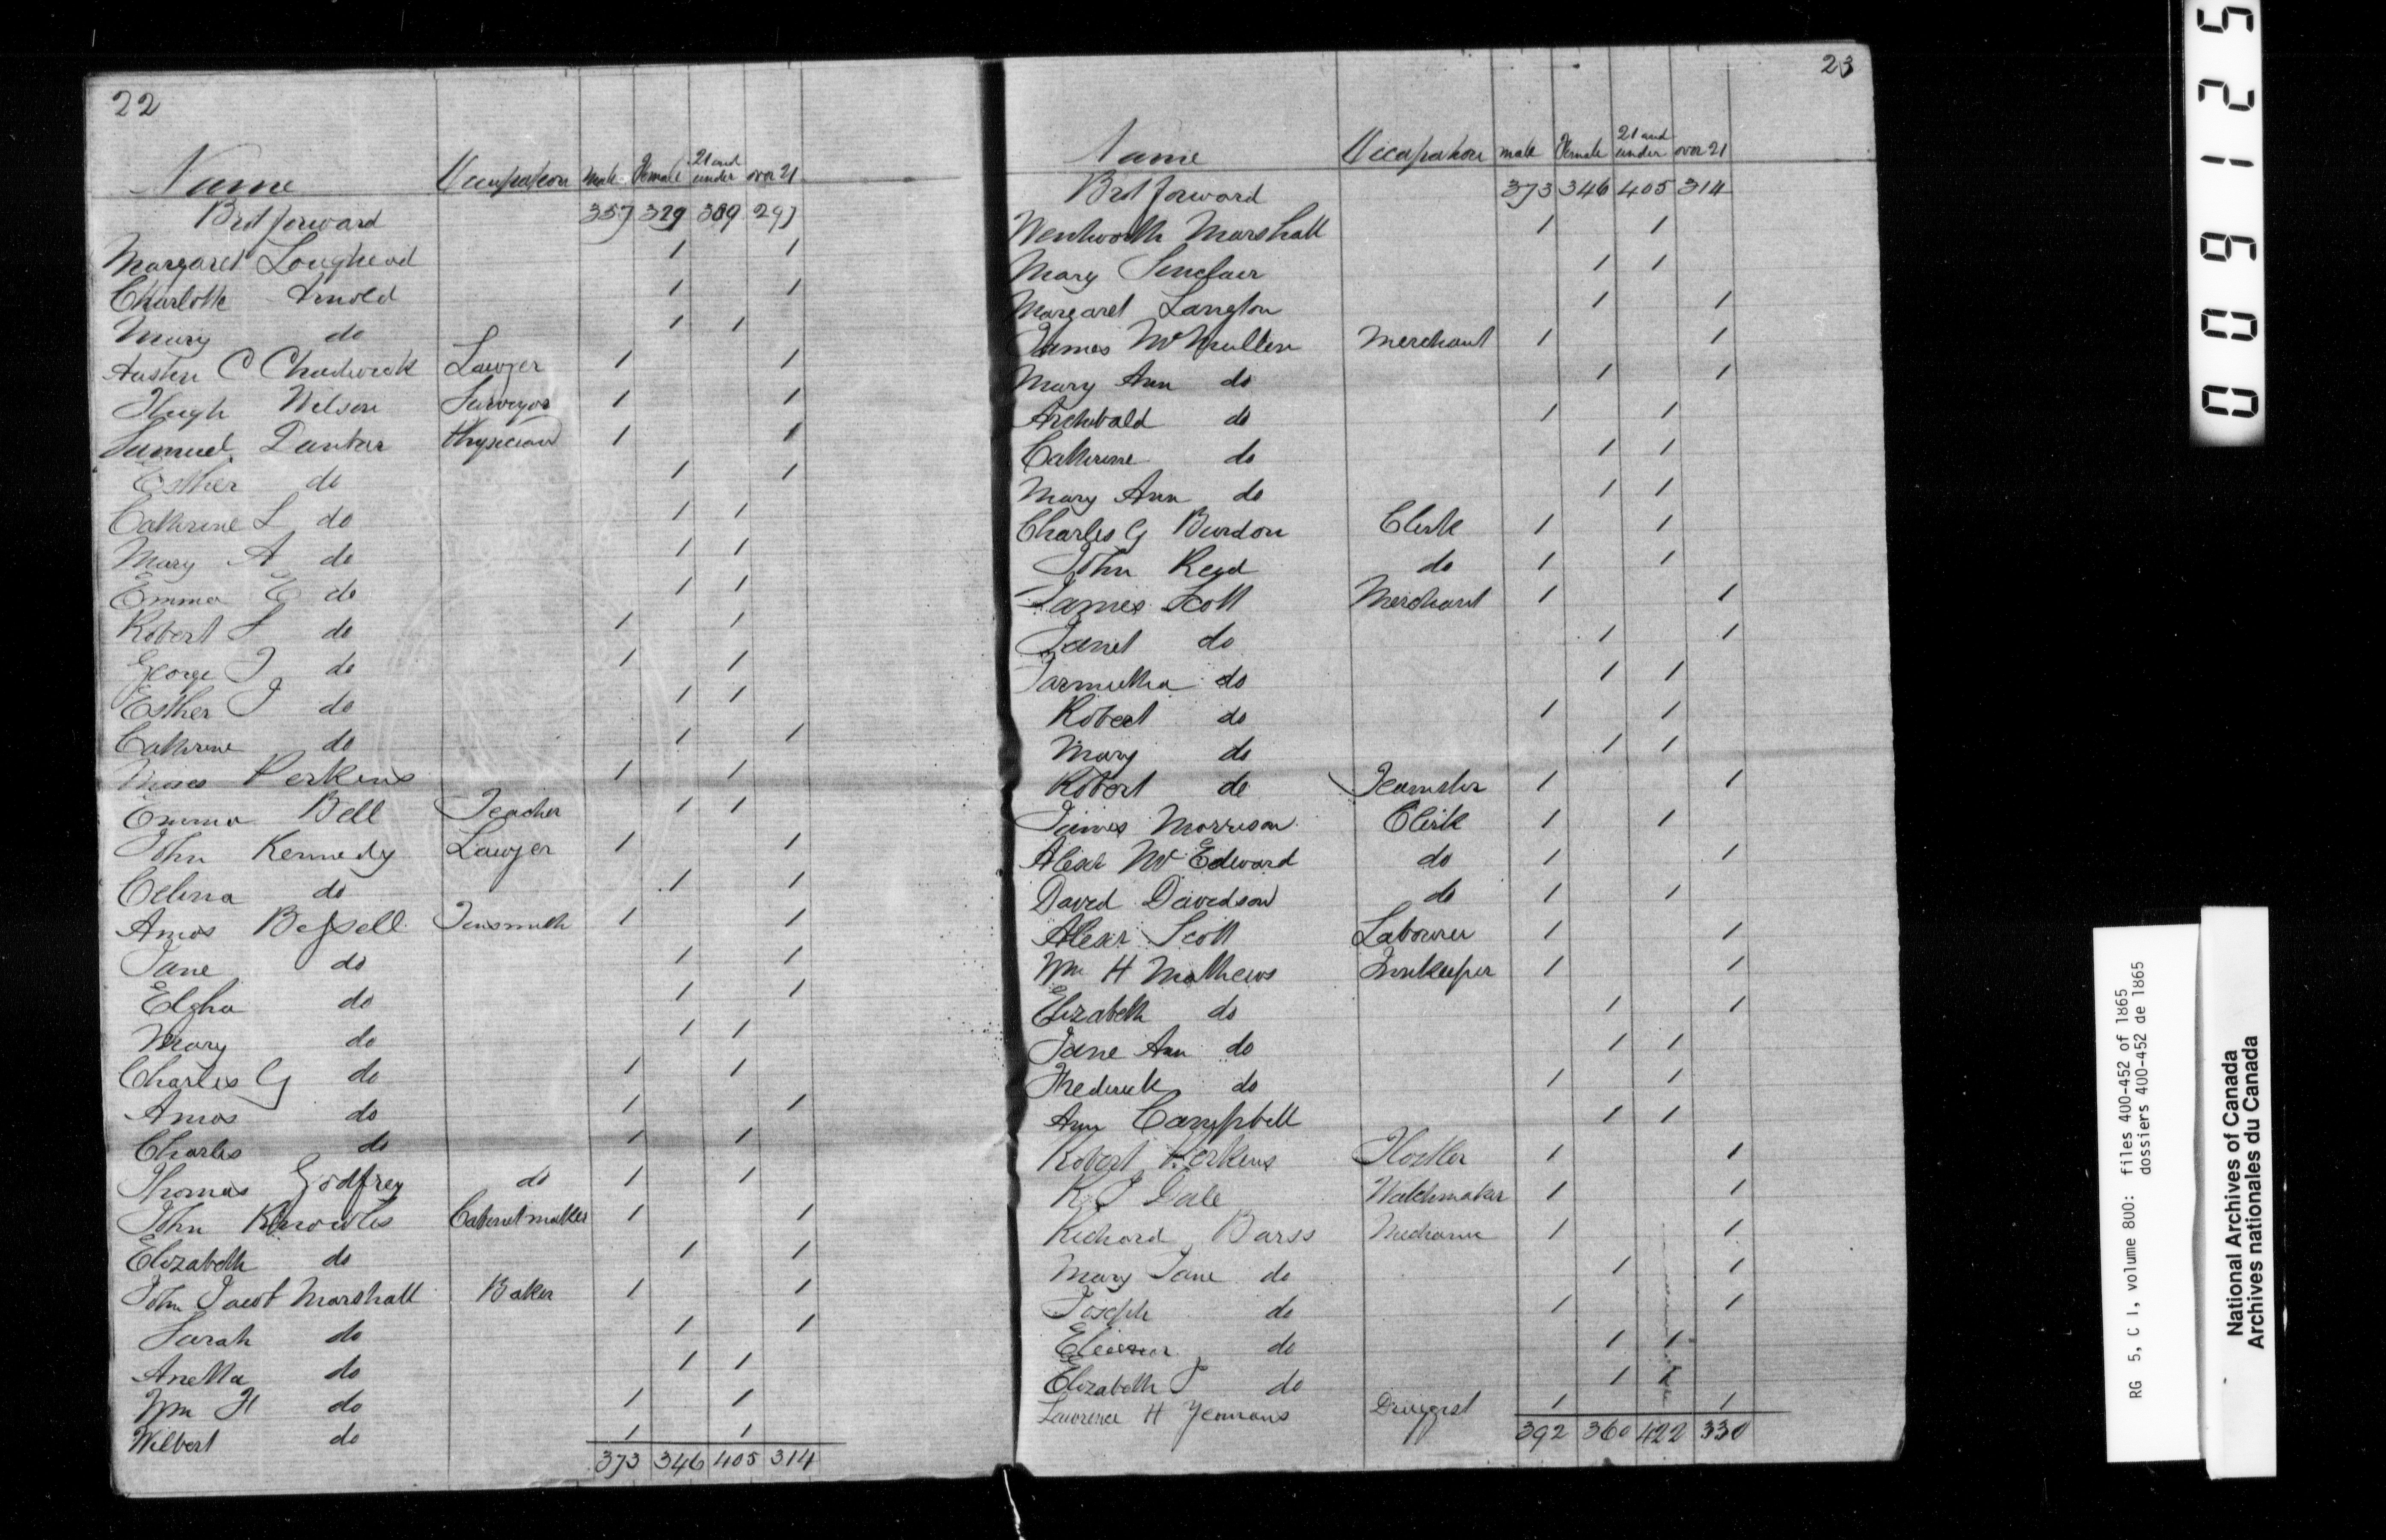 22
Name Occupation Male Female 21 and under over 21
Brot forward 357 329 389 297
Margaret Loughead 1 1
Charlotte Arnold 1 1
Mary do 1 1
Austin C Chadwick Lawyer 1 1
Hugh Wilson Surveyor 1 1
Samuel Dunbar Physician 1 1
Esther do 1 1
Catherine L do 1 1
Mary A do 1 1
Emma E do 1 1
Robert S do 1 1
George J do 1 1
Esther J do 1 1
Catherine do 1 1
Moses Perkins 1 1
Emma Bell Teacher 1 1
John Kennedy Lawyer 1 1
Celina do 1 1
Amos Bessell Tinsmith 1 1
Jane do 1 1
Elgha do 1 1
Mary do 1 1
Charles G do 1 1
Amos do 1 1
Charles do 1 1
Thomas Godfrey do 1 1
John Knowles Cabinetmaker 1 1
Elizabeth do 1 1
John Jacob Marshall Baker 1 1
Sarah do 1 1
Anetta do 1 1
Wm H do 1 1
Wilbert do 1 1
373 346 405 314
23
Name Occupation male Female 21 and under over 21
Brot forward 373 346 405 314
Wentworth Marshall 1 1
Mary Sinclair 1 1
Margaret Langton 1 1
James McMullen Merchant 1 1
Mary Ann do 1 1
Archibald do 1 1
Catherine do 1 1
Mary Ann do 1 1
Charles G Burdon Clerk 1 1
John Reyd do 1 1
James Scott Merchant 1 1
Janet do 1 1
Tarmutha do 1 1
Robert do 1 1
Mary do 1 1
Robert do Teamster 1 1
James Morrison Clerk 1 1
Alexr McEdward do 1 1
David Davidson do 1 1
Alexr Scott Labourer 1 1
Wm H Mathews Innkeeper 1 1
Elizabeth do 1 1
Jane Ann do 1 1
Frederick do 1 1
Ann Campbell 1 1
Robert Perkins Hostler 1 1
R J Dale Watchmaker 1 1
Richard Barss Mechanic 1 1
Mary Jane do 1 1
Joseph do 1 1
do 1 1
Elizabeth J do 1 1
Lawrence H Yeomans Druggist 1 1
392 360 422 330
009125
RG 5, C 1, volume 800: files 400-452 of 1865
dossiers 400-452 de 1865
National Archives of Canada
Archives nationales du Canada